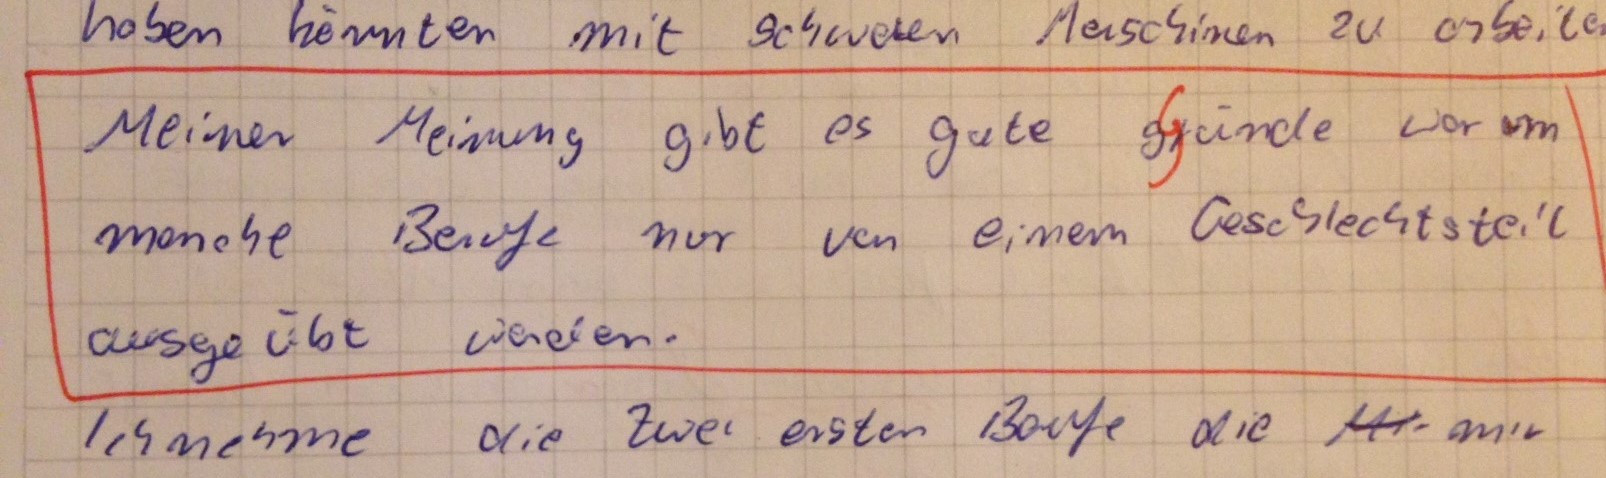 haben könnten mit schweren Maschinen zu arbeiten
Meiner Meinung gibt es gute gründe warum
manche Berufe nur von einem Geschlechtsteil
ausgeübt werden.
Ich nehme die zwei ersten Berufe die mir